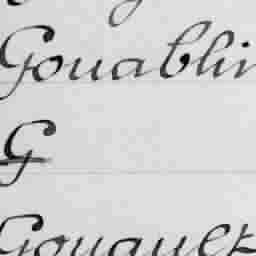 Gouablin
G
Gouault